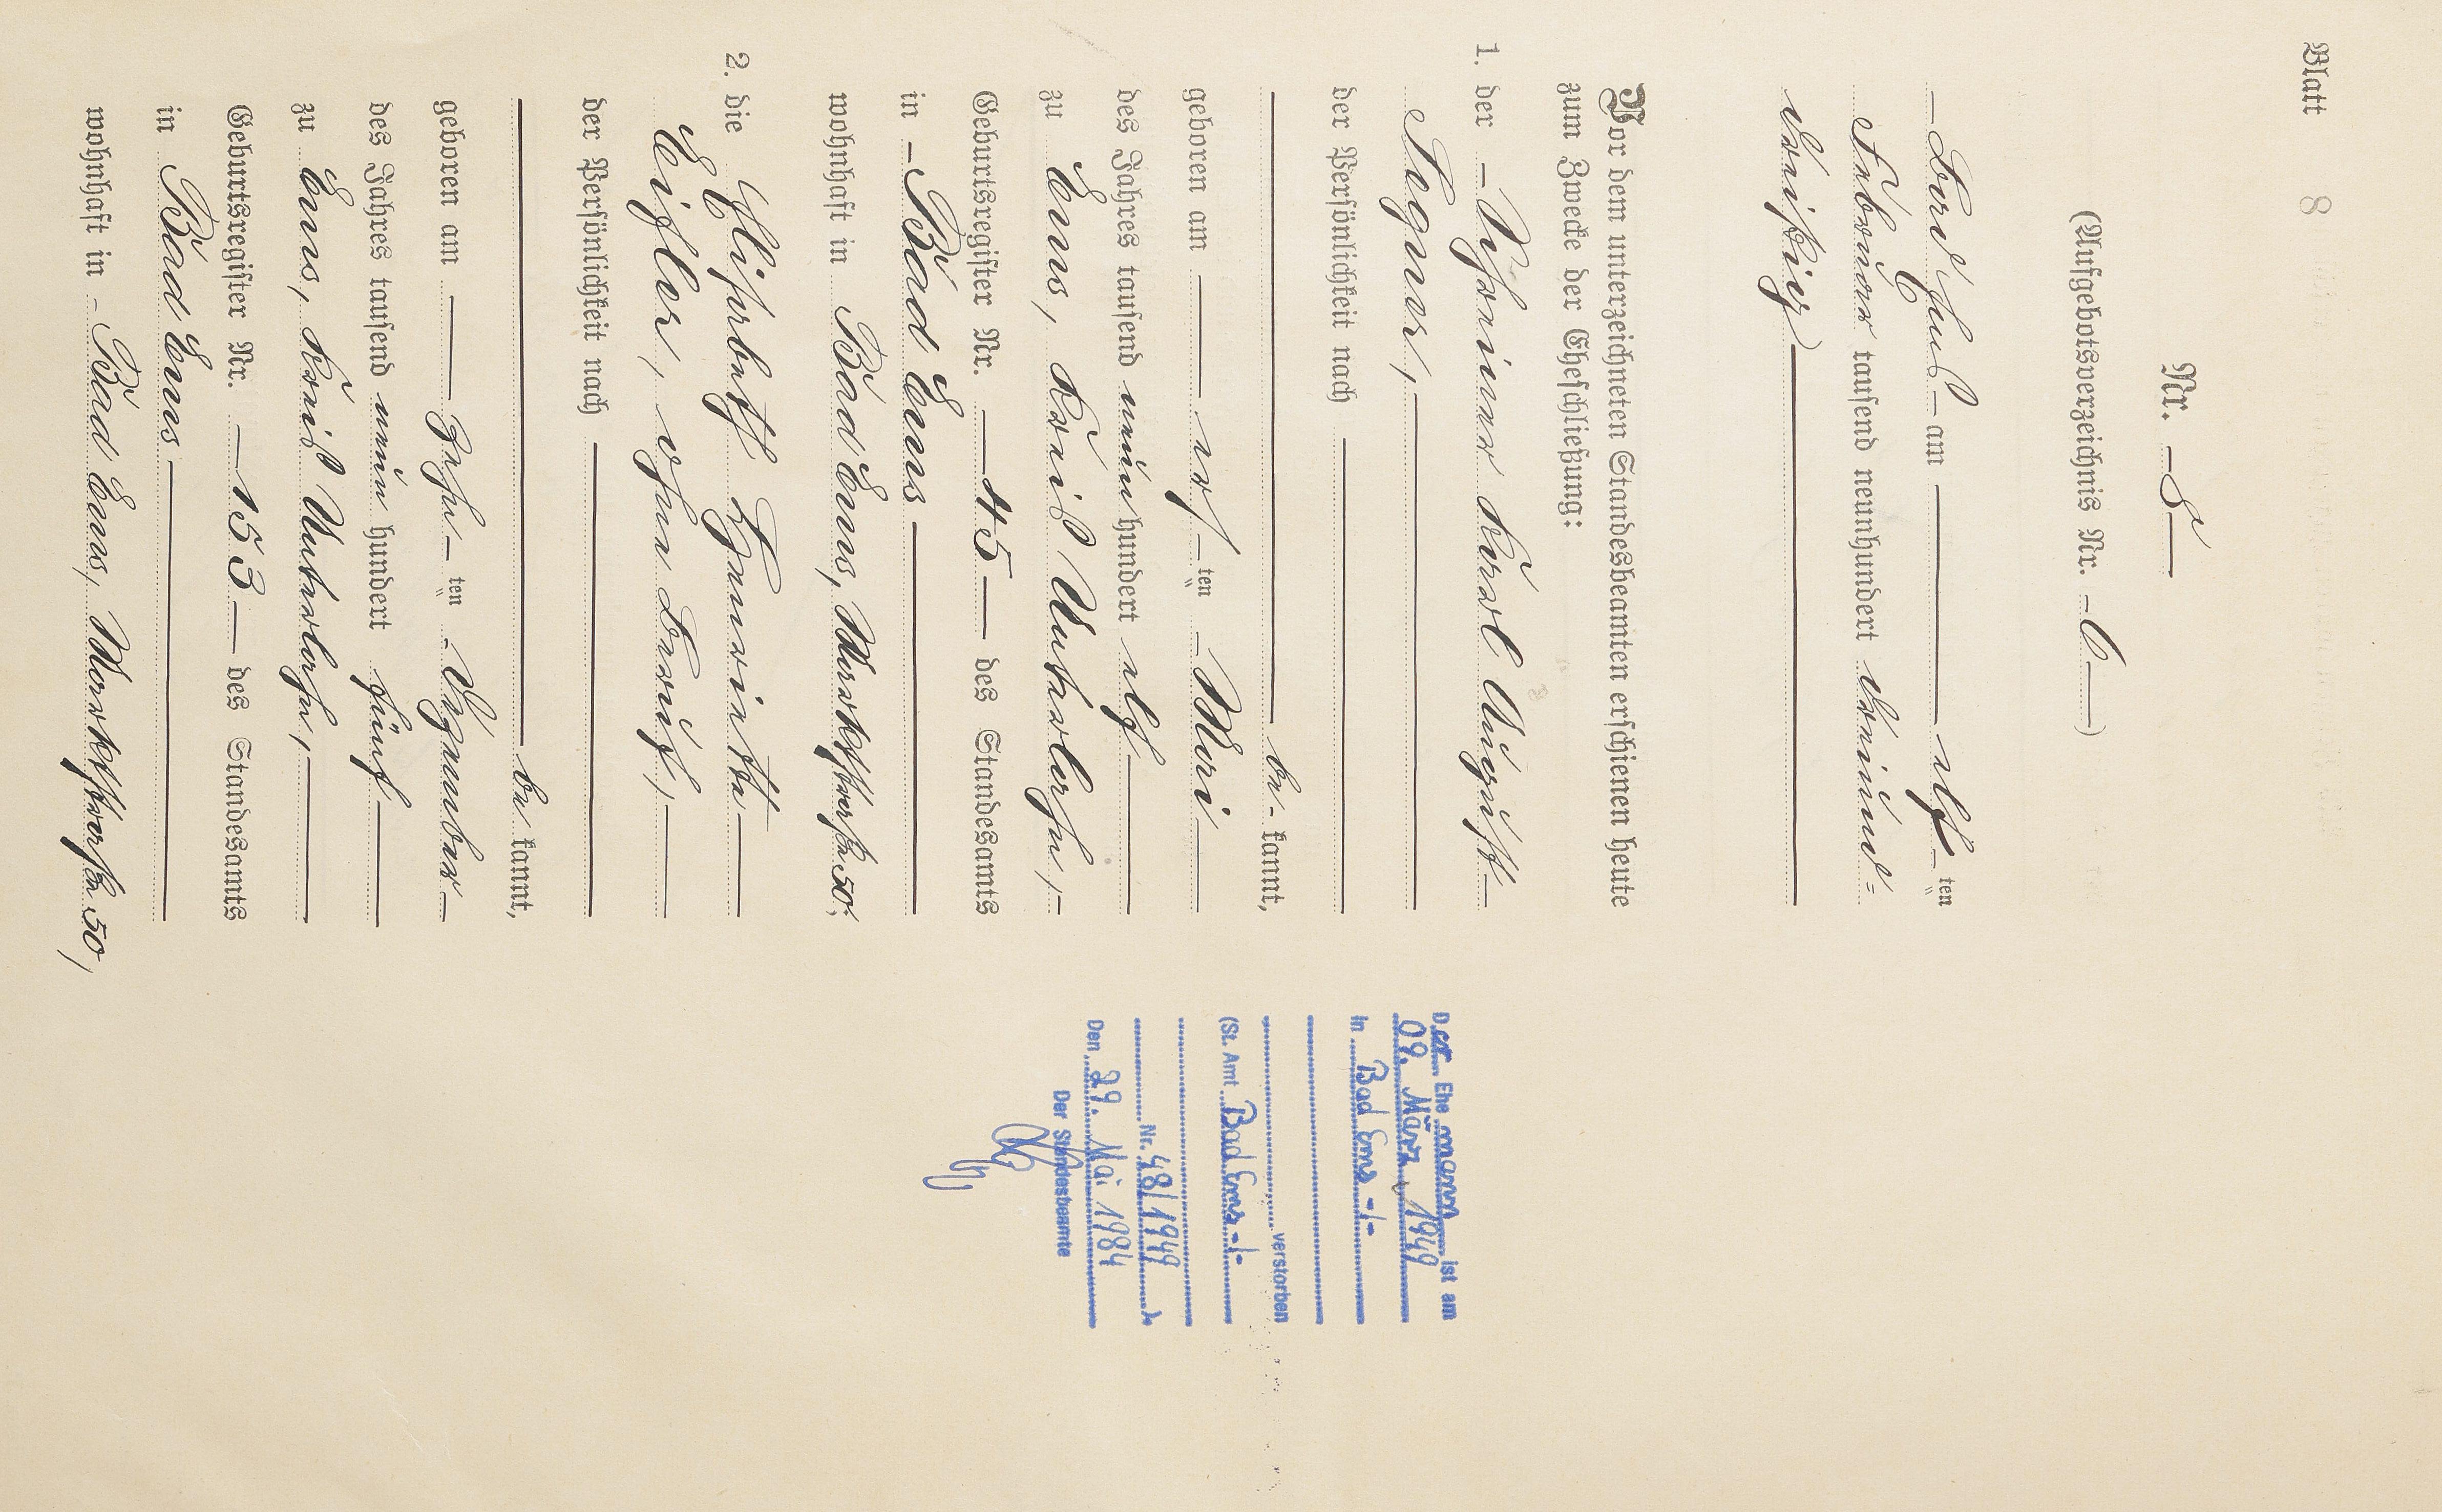 Blatt 8
Nr. – 8 –
(Aufgebotsverzeichnis Nr. – 6 –)
– Bad Ems – am – elf – ten
Februar tausend neunhundert dreiund=
dreißig
Vor dem unterzeichneten Standesbeamten erschienen heute
zum Zwecke der Eheschließung:
1. der – Schreiner Karl August –
Bogner, –
der Persönlichkeit nach –
– be- kannt,
geboren am – – ten – Mai –
des Jahres tausend neun hundert elf –
zu Ems, Kreis Unterlahn, –
Geburtsregister Nr. – 45 – des Standesamts
in – Bad Ems –
wohnhaft in Bad Ems, Marktstraße 50;
2. die Elisabeth Henriette –
ohne Beruf, –
der Persönlichkeit nach –
– be kannt,
geboren am – zehn – ten – Dezember –
des Jahres tausend neun hundert fünf –
zu Ems, Kreis Unterlahn, –
Geburtsregister Nr. – 153 – des Standesamts
in Bad Ems –
wohnhaft in – Bad Ems, Marktstraße 50,
Der Ehemann ist am
09. März 1949
in Bad Ems -/-
verstorben
(St. Amt Bad Ems -/-
Nr. 48/1949 ).
Den 29. Mai 1984
Der Standesbeamte